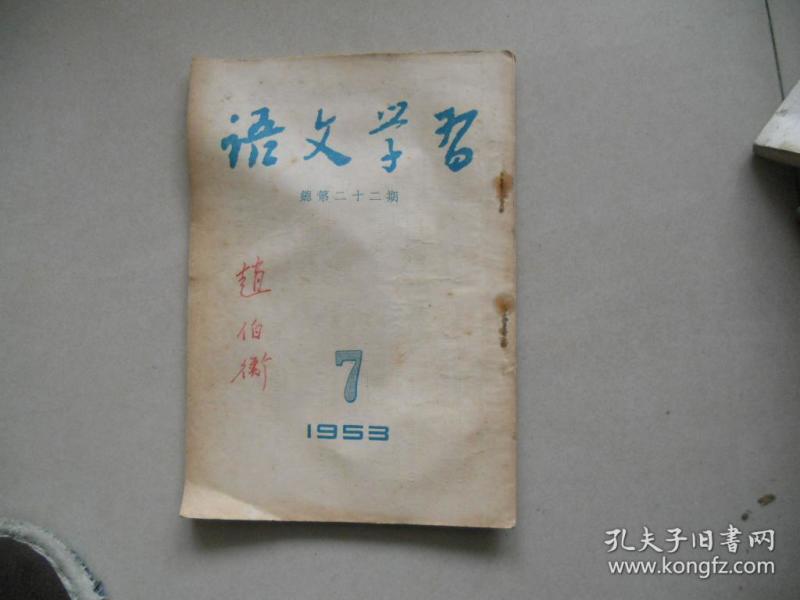 语文学習
總第二十二期
趙
伯
衡
7
1953
孔夫子旧書网
www.kongfz.com